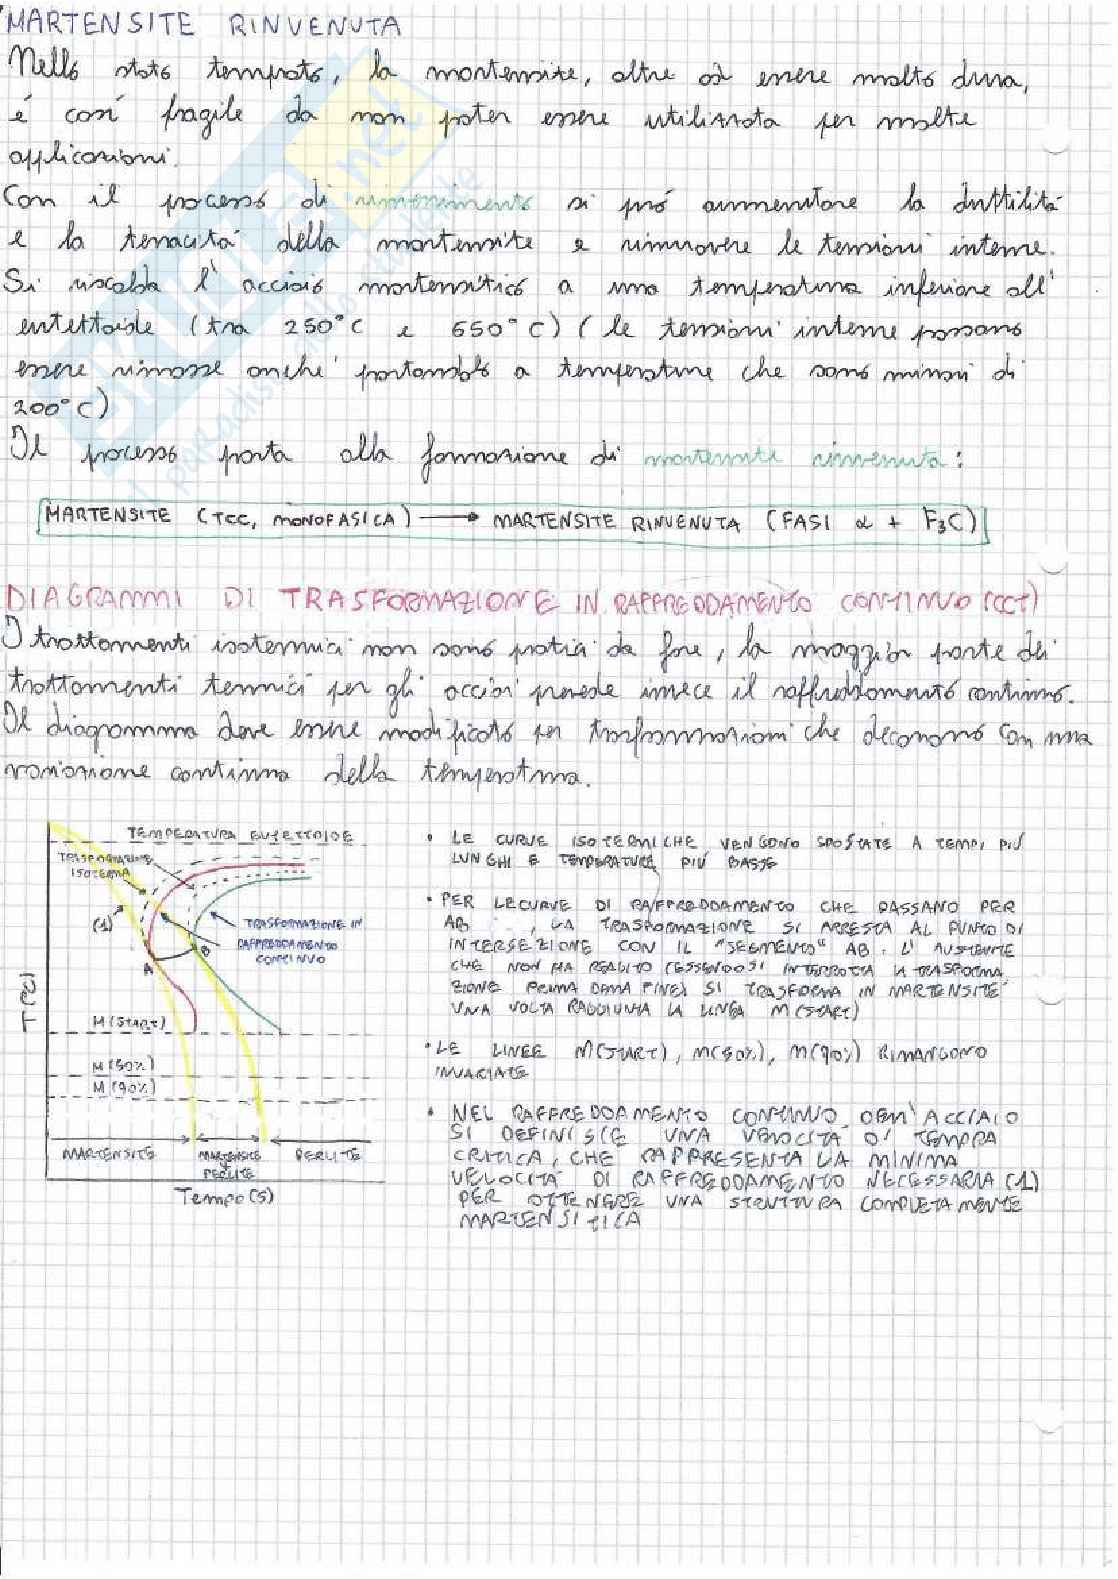 MARTENSITE RINVENUTA
Nello stato temprato, la martensite, oltre ad essere molto dura,
é cosí fragile da non poter essere utilizzata per molte
applicazioni.
Con il processo di rinvenimento si puó aumentare la duttilitá
e la tenacitá della martensite e rimuovere le tensioni interne.
Si riscalda l'acciaio martensitico a una temperatura inferiore all'
eutettoide (tra 250°C e 650°C) (le tensioni interne possono
essere rimosse anche portandolo a temperature che sono minori di
200°C)
Il processo porta alla formazione di martensite rinvenuta:
MARTENSITE (TCC, MONOFASICA) → MARTENSITE RINVENUTA (FASI α + F₃C)
DIAGRAMMI DI TRASFORMAZIONE IN RAFFREDDAMENTO CONTINUO (CCT)
I trattamenti isotermici non sono pratici da fare, la maggior parte dei
trattamenti termici per gli acciai prevede invece il raffreddamento continuo.
Il diagramma deve essere modificato per trasformazioni che decorrono con una
variazione continua della temperatura.
TEMPERATURA EUTETTOIDE
TRASFORMAZIONE
ISOTERMA
(1)
TRASFORMAZIONE IN
RAFFREDDAMENTO
CONTINUO
A
B
T(°C)
M(START)
M(50%)
M(90%)
MARTENSITE
MARTENSITE
PERLITE
PERLITE
Tempo(s)
• LE CURVE ISOTERMICHE VENGONO SPOSTATE A TEMPI PIÚ
LUNGHI E TEMPERATURE PIÚ BASSE
• PER LE CURVE DI RAFFREDDAMENTO CHE PASSANO PER
AB, LA TRASFORMAZIONE SI ARRESTA AL PUNTO DI
INTERSEZIONE CON IL "SEGMENTO" AB. L'AUSTENITE
CHE NON HA REAGITO (ESSENDOSI INTERROTTA LA TRASFORMA
ZIONE PRIMA DELLA FINE) SI TRASFORMA IN MARTENSITE
UNA VOLTA RAGGIUNTA LA LINEA M(START)
• LE LINEE M(START), M(50%), M(90%) RIMANGONO
INVARIATE
• NEL RAFFREDDAMENTO CONTINUO DELL'ACCIAIO
SI DEFINISCE UNA VELOCITÁ DI TEMPRA
CRITICA, CHE RAPPRESENTA LA MINIMA
VELOCITÁ DI RAFFREDDAMENTO NECESSARIA (1)
PER OTTENERE UNA STRUTTURA COMPLETAMENTE
MARTENSITICA